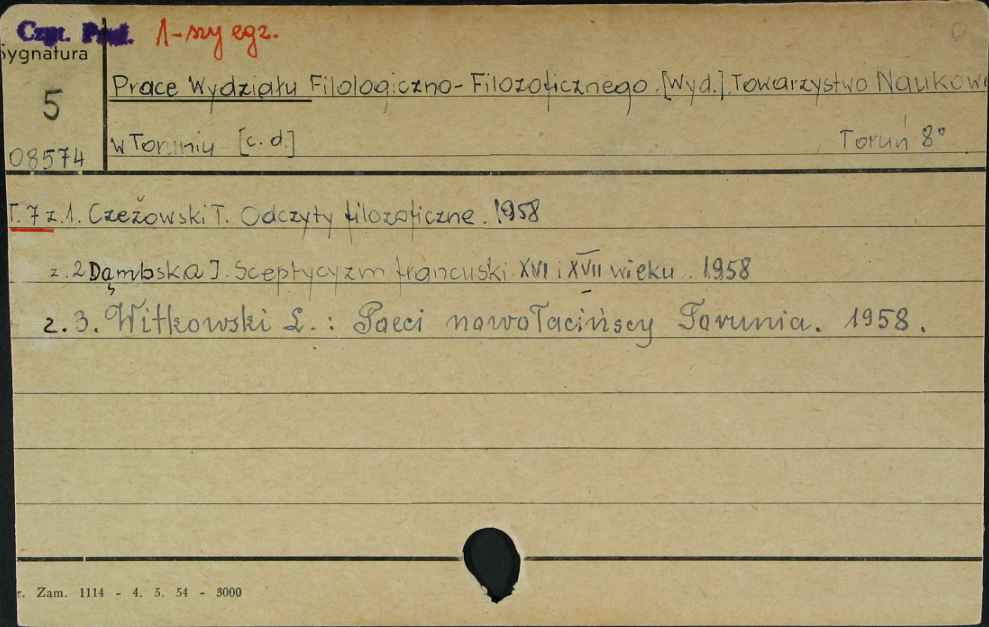 Czyt. Prof. 1-szy egz.
Sygnatura
5
08574
Prace Wydziału Filologiczno-Filozoficznego. [Wyd.] Towarzystwo Naukow
w Toruniu [c. d.] Toruń 8°
T. 7 z. 1. Czeżowski T. Odczyty filozoficzne. 1958
z. 2 Dąmbska I. Sceptycyzm francuski XVI i XVII wieku. 1958
z. 3. Witkowski L. : Poeci nowołacińscy Torunia. 1958.
r. Zam. 1114 - 4. 5. 54 - 3000